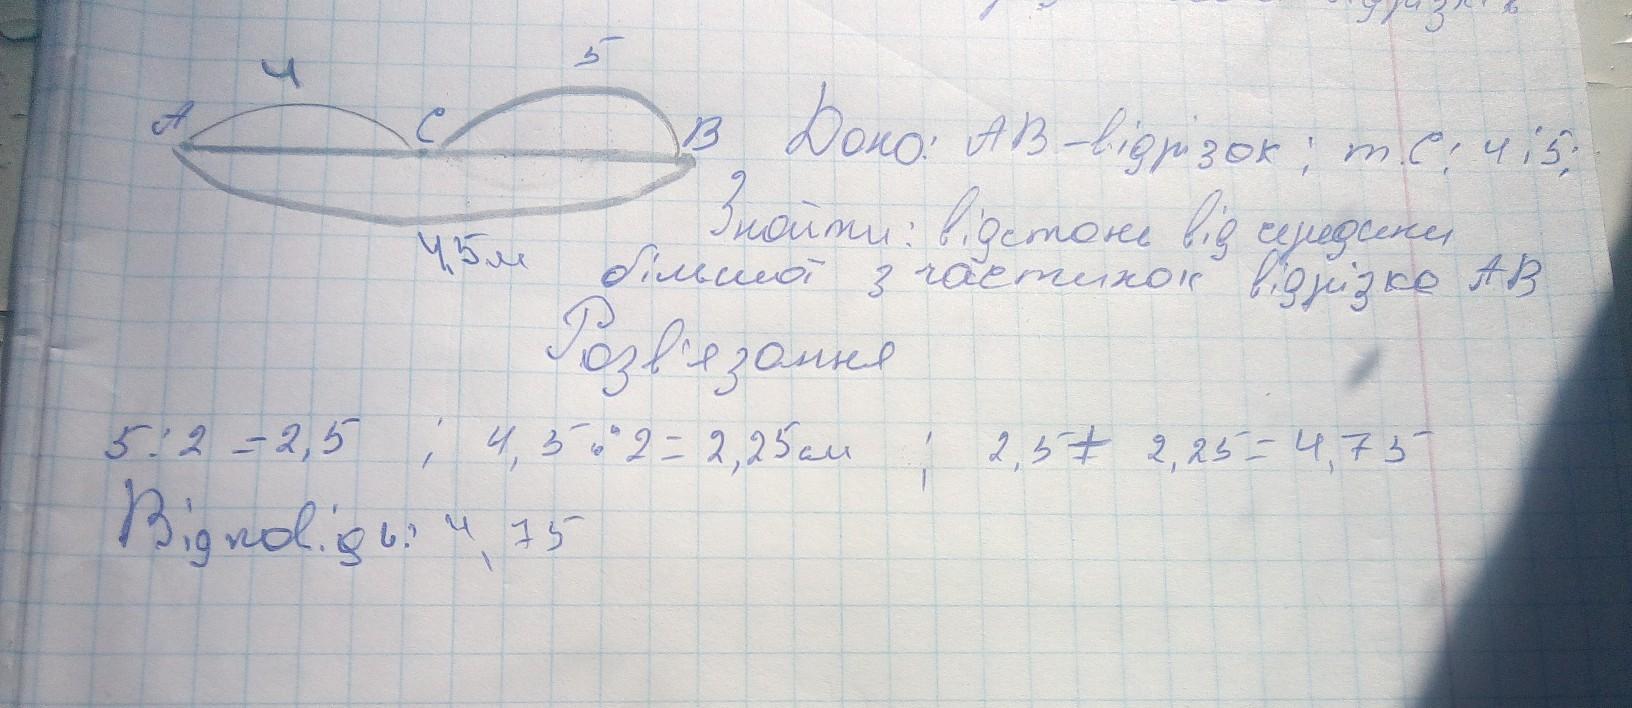 відрізків
4
5
A
C
B
4,5м
Дано: AB-відрізок; т.C; 4 і 5;
Знайти: відстань від середини
більшої з частинок відрізка AB
Розв'язання
5:2 =2,5 ; 4,5:2= 2,25см ; 2,5+ 2,25=4,75
Відповідь: 4,75